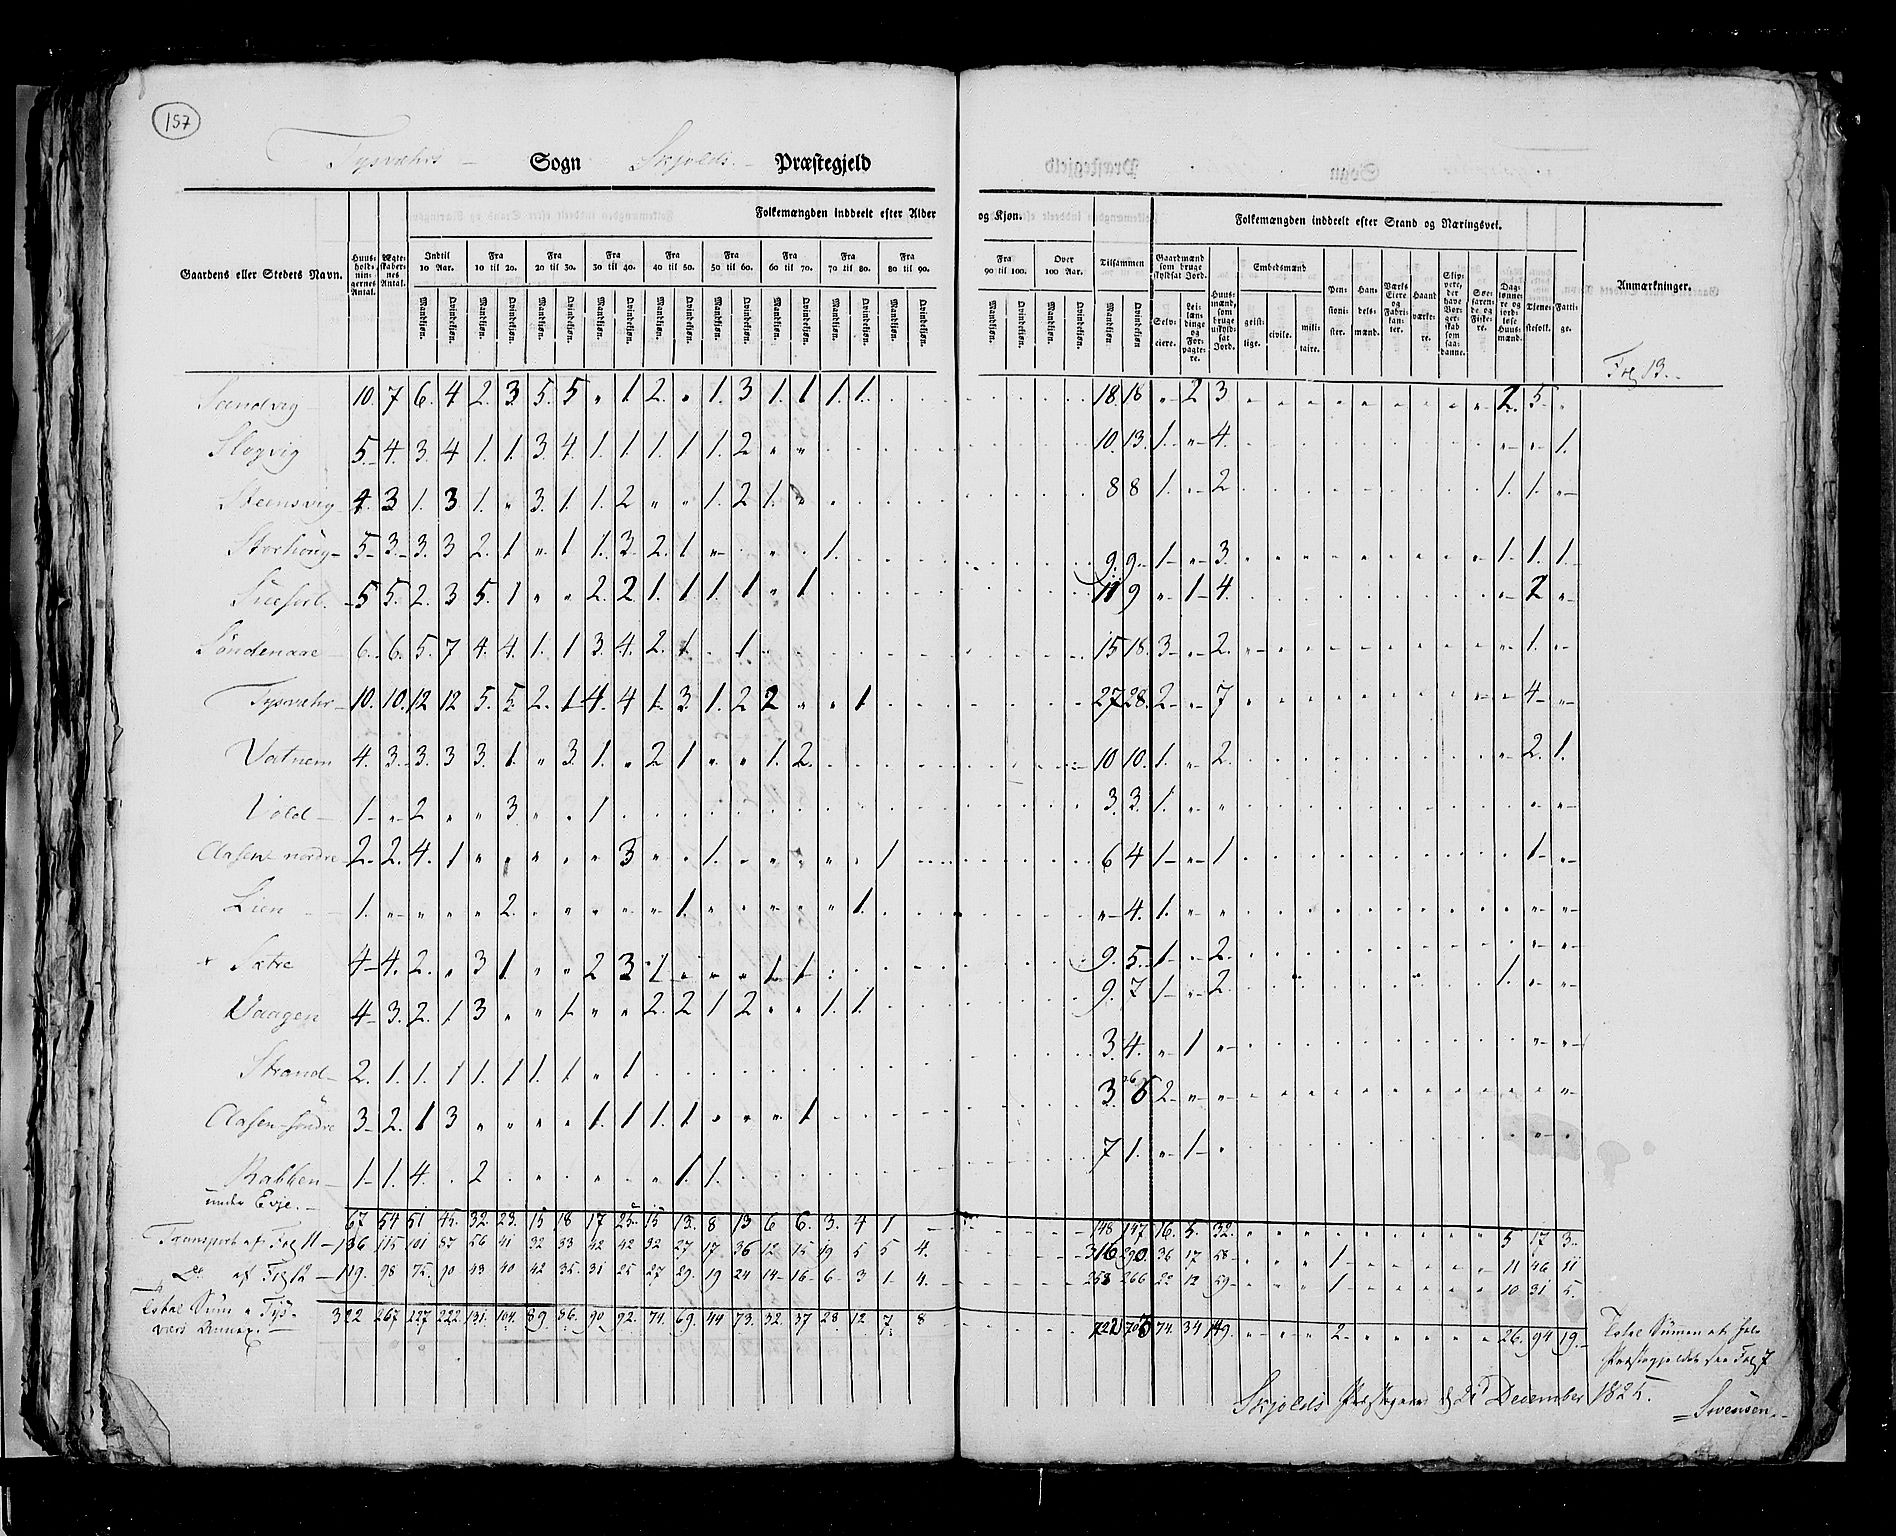 157
Tysværs Sogn Skjolds Præstegjeld
Folkemængden inddeelt efter Alder og Kjøn. Folkemængden inddeelt efter Stand og Næringsvei.
Gaardens eller Stedets Navn. Huusholdningernes Antal. Ægteskabernes Antal. Indtil 10 Aar. Fra 10 til 20. Fra 20 til 30. Fra 30 til 40. Fra 40 til 50. Fra 50 til 60. Fra 60 til 70. Fra 70 til 80. Fra 80 til 90. Fra 90 til 100. Over 100 Aar. Tilsammen Gaardmænd som bruge skyldsat Jord. Huusmænd, som bruge uskyldsat Jord. Embedsmænd Pensionister. Handelsmænd. Værks Eiere og Fabrikanter. Haandværkere. Skippere, der have Borgerskab som saadanne. Søefarende og Fiskere. Daglønnere og jordløse Huusmænd. Tjenestefolk. Fattige. Anmærkninger.
Mandkjøn. Qvindekjøn. Mandkjøn. Qvindekjøn. Mandkjøn. Qvindekjøn. Mandkjøn. Qvindekjøn. Mandkjøn. Qvindekjøn. Mandkjøn. Qvindekjøn. Mandkjøn. Qvindekjøn. Mandkjøn. Qvindekjøn. Mandkjøn. Qvindekjøn. Mandkjøn. Qvindekjøn. Mandkjøn. Qvindekjøn. Mandkjøn. Qvindekjøn Selveiere. Leilændinge og Forpagtere. geistlige. civile. militaire.
Fol 13.
Sandvig 10. 7 6. 4 2. 3 5. 5 " 1 2. " 1. 3 1. 1 1. 1. 18. 18 " 2 3 2. 5 "
Slogvig 5 4. 3. 4 1. 1. 3. 4. 1. 1. 1. 1 1. 2 " " 10. 13. 1. " 4. " " 1.
Steensvig 4. 3 1. 3 1. " 3. 1. 1. 2 " " 1. 2 1. " 8 8 1. " 2 1. 1. "
5 3. 3. 3 2. 1 " 1 1. 3. 2. 1 " 1. 9. 9. 1 " 3. 1. 1. 1
5 5. 2. 3 5. 1 " " 2. 2. 1. 1 1. 1 " 1 11 9 " 1 4. " 2 "
Søndenaae 6. 6. 5. 7 4. 4. 1. 1 3. 4. 2. 1 " 1. 15 18. 3 " 2. " 1. "
Tysvær 10. 10. 12 12 5. 5. 2. 1 4. 4 1. 3. 1. 2 2 " " 1 27 28. 2 " 7 4 "
Vatnem 4. 3. 3. 3 3. 1. " 3. 1. " 2 1 " " 1. 2. 10 10. 1. " 2. " 2. 1.
Vold 1 " 2 " " 3 " " 1 3. 3. 1. " " " "
Aasen nordre 2. 2. 4. 1 " " " " " 3 " " 1. " " " " " 1 6 4 1 " 1 1 "
Lien 1. " " " " 2. " " " " " 1. " " " " " 1. " 4. 1. " " " "
Sætre 4 4. 2. " 3 1 " " 2 3 1 " " " 1. 1 9. 5. 1 " 2. " "
Vaagen 4 3. 2. 1 3 " " 1. " " 2. 2 1 2 " " 1. 1. 9. 7 1 " 2 1. " "
Strand 2. 1. 1. 1 1. 1 1. 1 " 1 3. 4. " 1 " " "
Aasen søndre 3 2. 1 3 " " " " 1. 1 1. 1 " " " 1 3. 6 2 " " "
Krabben 1 1. 4. " 2 1. 1. 7 1. " 1 " " "
under Evje.
67 54 51 45. 32. 23. 15 18 17 25 15 13. 8 13 6 6. 3. 4 1 148 147 16. 5. 32. 5 17 3.
Transport af Fol 11 136 115 101 87 56 41 32 33 42 42 32 27 17 36 12 15 19 5 5 4. 316 290 36 17 58 1 11 46 11
Do af Fol 12 119. 98 75. 90 43 40 42 35. 31 25 27 29. 19 24 14 16 6 3 1 4. 258 266 22 12 59 1 10 31 5.
Total Sum i Tysværs Annex. 322 267 227 222. 131. 104. 89 86. 90 92. 74. 69. 44 73. 32. 37 28 12. 7 8 722 703 74. 34 149. 2 26. 94 19.
Total Summen af hele Præstegjeldet see Fol 7
Skjolds Præstegaard d. 21 December 1825.
Svensen.